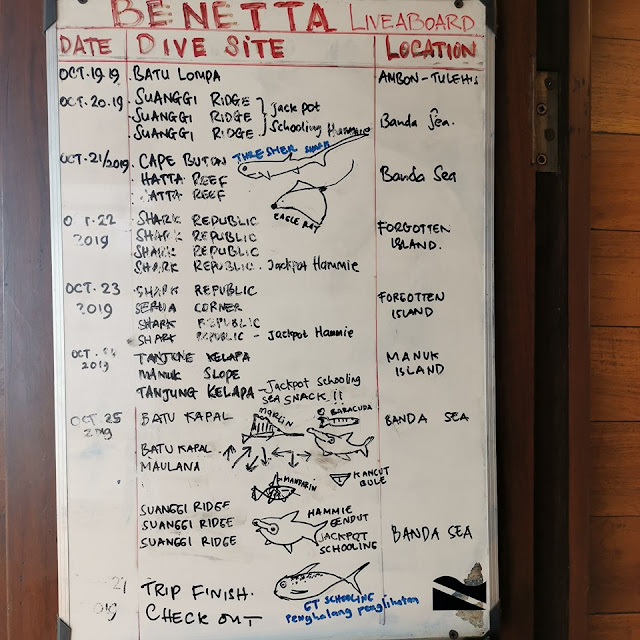 BENETTA LIVEABOARD
DATE DIVE SITE LOCATION
OCT.19.19 BATU LOMPA AMBON-TULEHU
OCT.20.19 SUANGGI RIDGE Jackpot
SUANGGI RIDGE Banda Sea.
SUANGGI RIDGE Schooling Hammie
OCT.21/2019 CAPE BUTON THRESHER SHARK
HATTA REEF Banda Sea
HATTA REEF
EAGLE RAY
OCT.22 SHARK REPUBLIC FORGOTTEN
2019 SHARK REPUBLIC ISLAND.
SHARK REPUBLIC
SHARK REPUBLIC. Jackpot Hammie
OCT.23 SHARK REPUBLIC FORGOTTEN
2019 SERUA CORNER ISLAND
SHARK REPUBLIC
SHARK REPUBLIC - Jackpot Hammie
OCT. TANJUNG KELAPA MANUK
2019 MANUK SLOPE ISLAND
TANJUNG KELAPA - Jackpot schooling
SEA SNACK !!
OCT 25 BATU KAPAL MARLIN BARACUDA BANDA SEA
2019
BATU KAPAL
MAULANA
MANDARIN KANCUT
BULE
SUANGGI RIDGE HAMMIE
SUANGGI RIDGE GENDUT
SUANGGI RIDGE JACKPOT BANDA SEA
SCHOOLING
27 TRIP FINISH.
019 CHECK OUT
GT SCHOOLING
Penghalang penglihatan